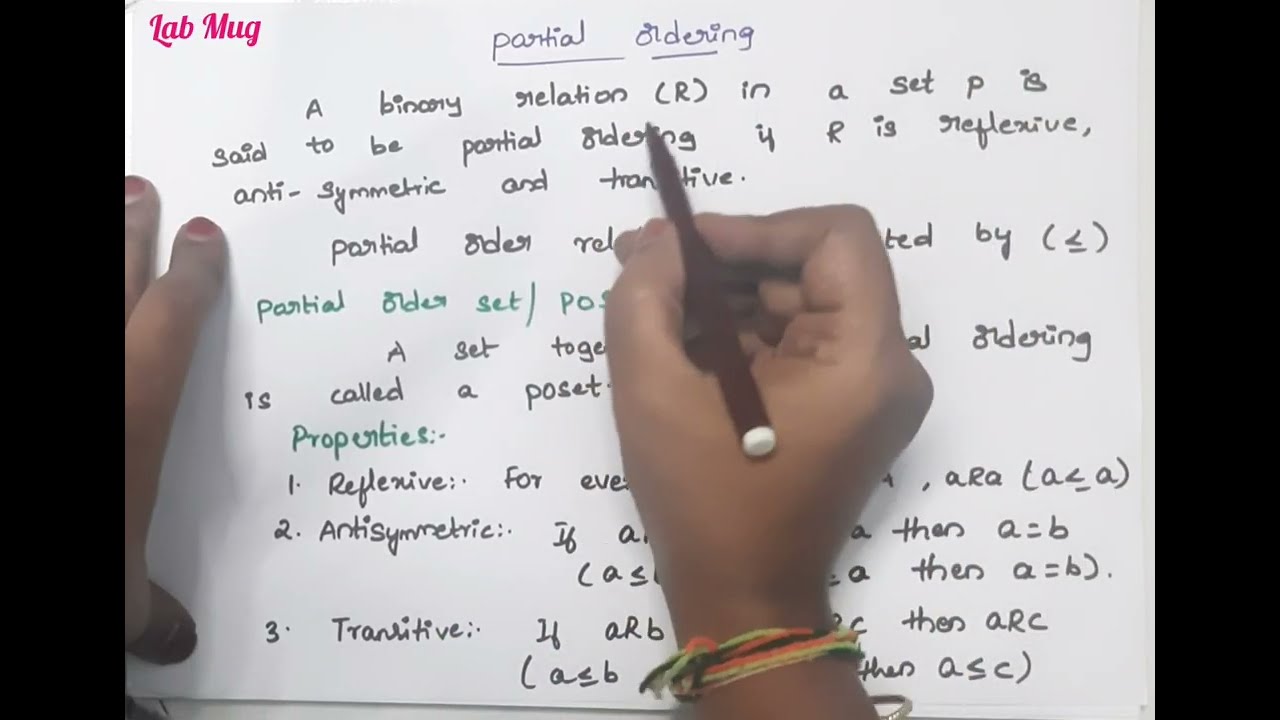 Lab Mug
partial ordering
A binary relation (R) in a set P is
said to be partial ordering if R is reflexive,
anti-symmetric and transitive.
partial order by (≤)
Partial order set/
A set ordering
is called a poset.
Properties:-
1. Reflexive:- For , aRa (a≤a)
2. Antisymmetric:- If a then a=b
(a≤ a then a=b).
3. Transitive:- If aRb then aRc
(a≤b then a≤c)